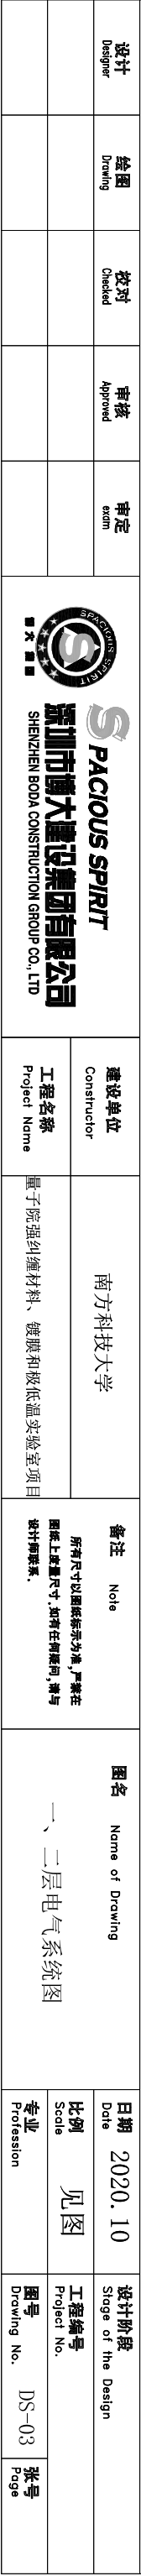 设计
Designer
绘图
Drawing
校对
Checked
审核
Approved
审定
exam
SPACIOUS SPIRIT
S
博大集团
SPACIOUS SPIRIT
深圳市博大建设集团有限公司
SHENZHEN BODA CONSTRUCTION GROUP CO., LTD
建设单位
Constructor
南方科技大学
工程名称
Project Name
量子院强纠缠材料、镀膜和极低温实验室项目
备注 Note
所有尺寸以图纸标示为准,严禁在
图纸上度量尺寸.如有任何疑问,请与
设计师联系.
图名 Name of Drawing
一、二层电气系统图
日期
Date
2020.10
设计阶段
Stage of the Design
比例
Scale
见图
工程编号
Project No.
专业
Profession
图号
Drawing No.
DS-03
张号
Page